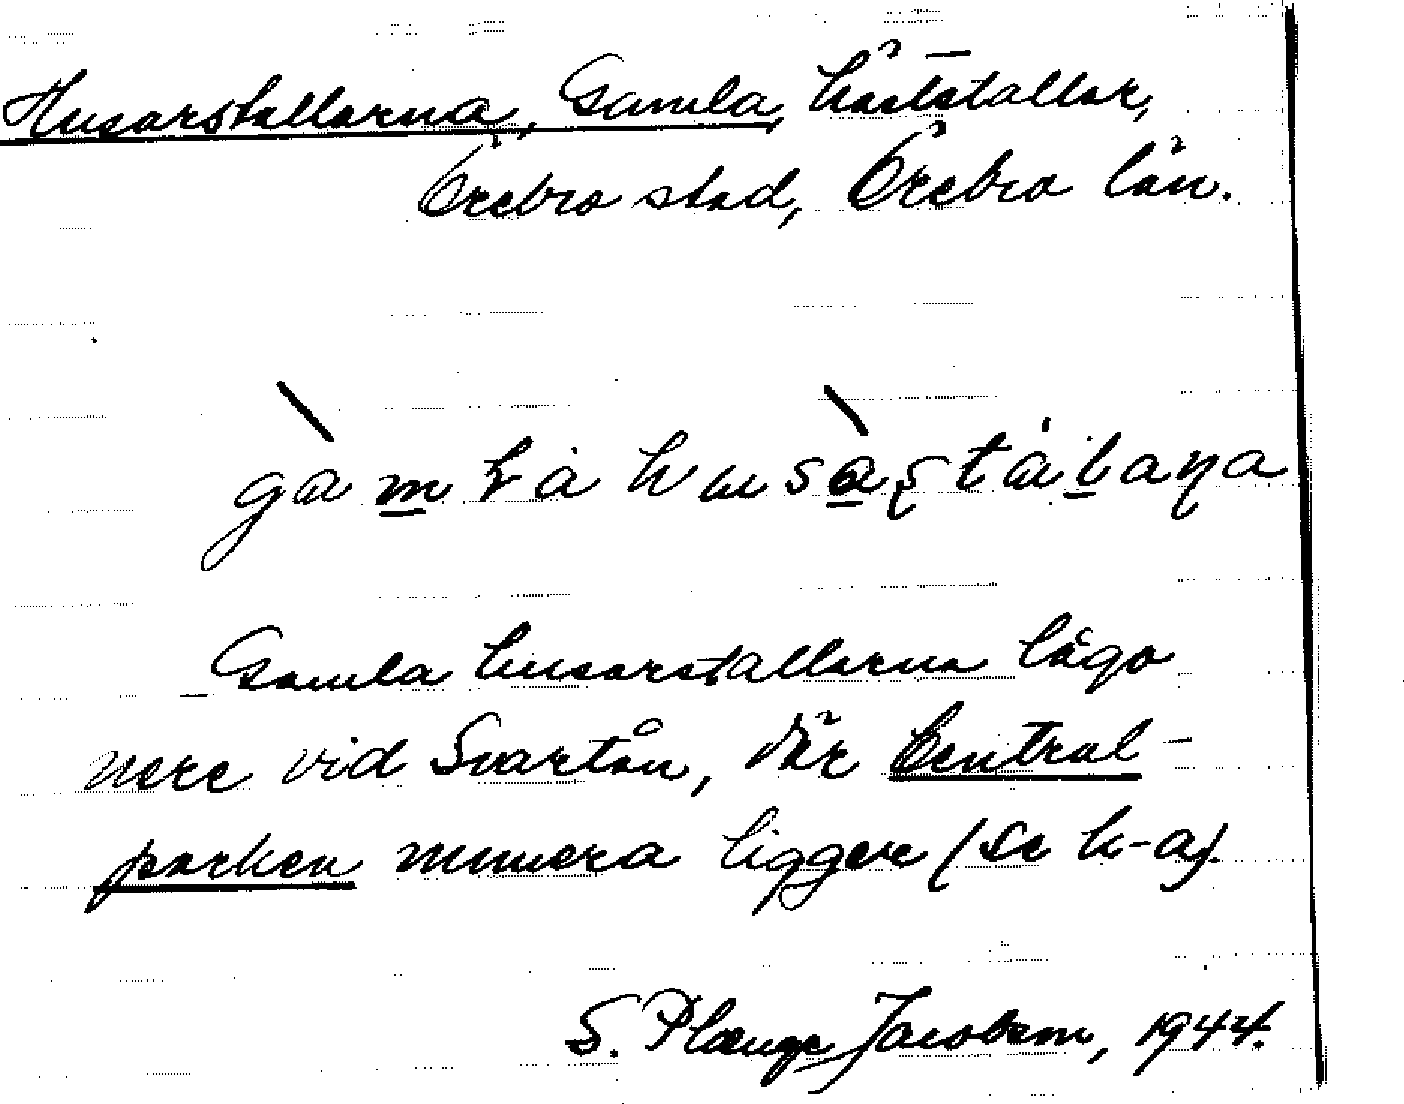 Husarstallarna, Gamla, häststallar,
Örebro stad, Örebro län.
Gamla husarstallarna lågo
nere vid Svartån, där Central-
parken numera ligger (se k-a).
S. Plænge Jacobson, 1944.